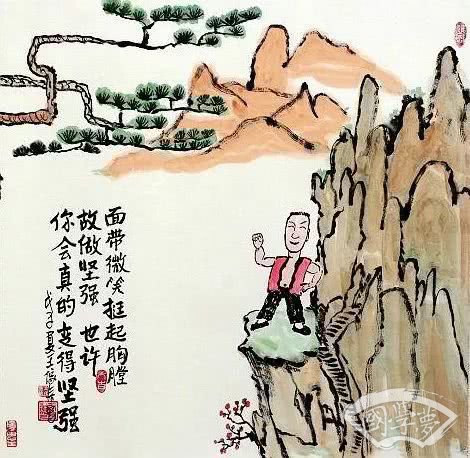 面带微笑挺起胸膛
故做坚强 也许
你会真的变得坚强
國學夢